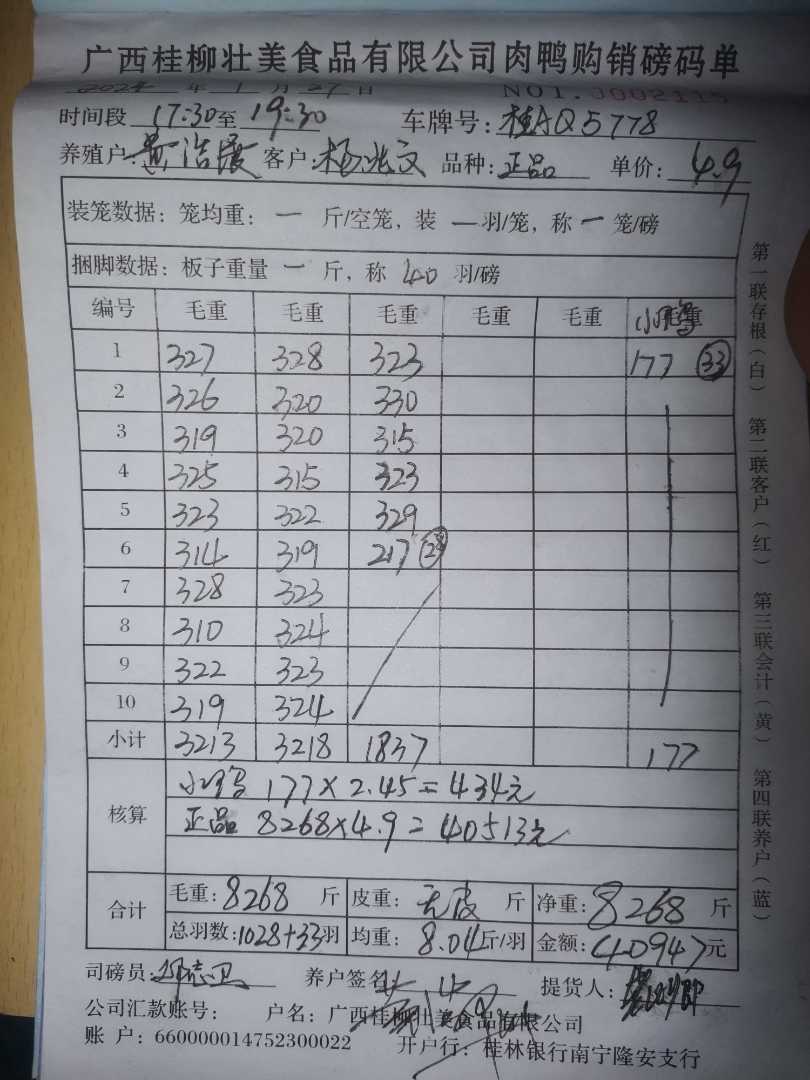 广西桂柳壮美食品有限公司肉鸭购销磅码单
2024年1月27日 NO1.0002115
时间段 17:30至 19:30 车牌号:桂AQ5778
养殖户:黄浩展 客户:杨兆文 品种:正品 单价:4.9
装笼数据:笼均重: 一 斤/空笼,装 一 羽/笼,称 一 笼/磅
捆脚数据:板子重量 一 斤,称 40 羽/磅
编号 毛重 毛重 毛重 毛重 毛重 毛重
1 327 328 323 177 33
2 326 320 330
3 319 320 315
4 325 315 323
5 323 322 329
6 314 319 217 28
7 328 323
8 310 324
9 322 323
10 319 324
小计 3213 3218 1837 177
核算
177×2.45=434元
正品 8268×4.9=40513元
合计
毛重:8268 斤 皮重:无皮 斤 净重:8268 斤
总羽数:1028+33羽 均重:8.04斤/羽 金额:40947元
司磅员: 养户签名: 提货人:
公司汇款账号: 户名:广西桂柳壮美食品有限公司
账 户:660000014752300022 开户行:桂林银行南宁隆安支行
第一联存根(白) 第二联客户(红) 第三联会计(黄) 第四联养户(蓝)